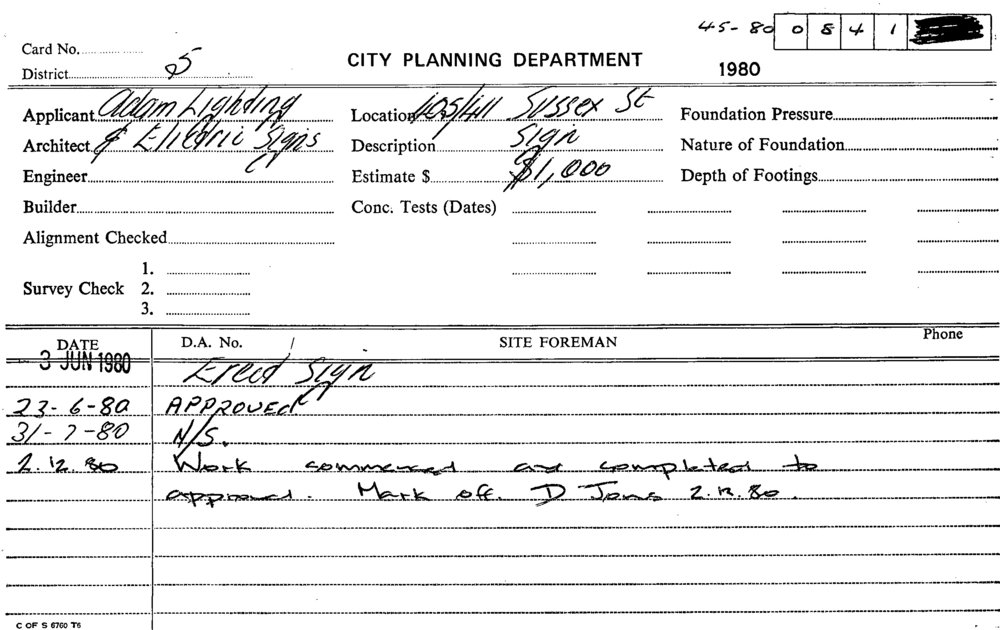 45-80 0 8 4 1
Card No.
CITY PLANNING DEPARTMENT
District 5
1980
Applicant Adam Lighting
Location 405/411 Sussex St
Foundation Pressure
Architect & Electric Signs
Description Sign
Nature of Foundation
Engineer
Estimate $ $1,000
Depth of Footings
Builder
Conc. Tests (Dates)
Alignment Checked
1.
Survey Check 2.
3.
DATE D.A. No. / SITE FOREMAN Phone
3 JUN 1980 Erect Sign
23-6-80 APPROVED
31-7-80 N/S.
2.12.80 Work commenced and completed to
approval. Mark off. D Jones 2.12.80.
C OF S 6760 T6